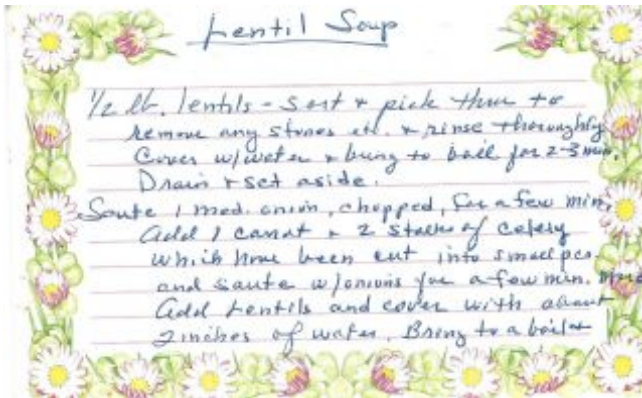 Lentil Soup
1/2 lb. lentils - sort + pick thru to
remove any stones etc. + rinse thoroughly
Cover w/water + bring to boil for 2-3 min.
Drain + set aside.
Saute 1 med. onion, chopped, for a few min.
Add 1 carrot + 2 stalks of celery
which have been cut into small pcs.
and saute w/onions for a few min. more
Add Lentils and cover with about
2 inches of water. Bring to a boil +